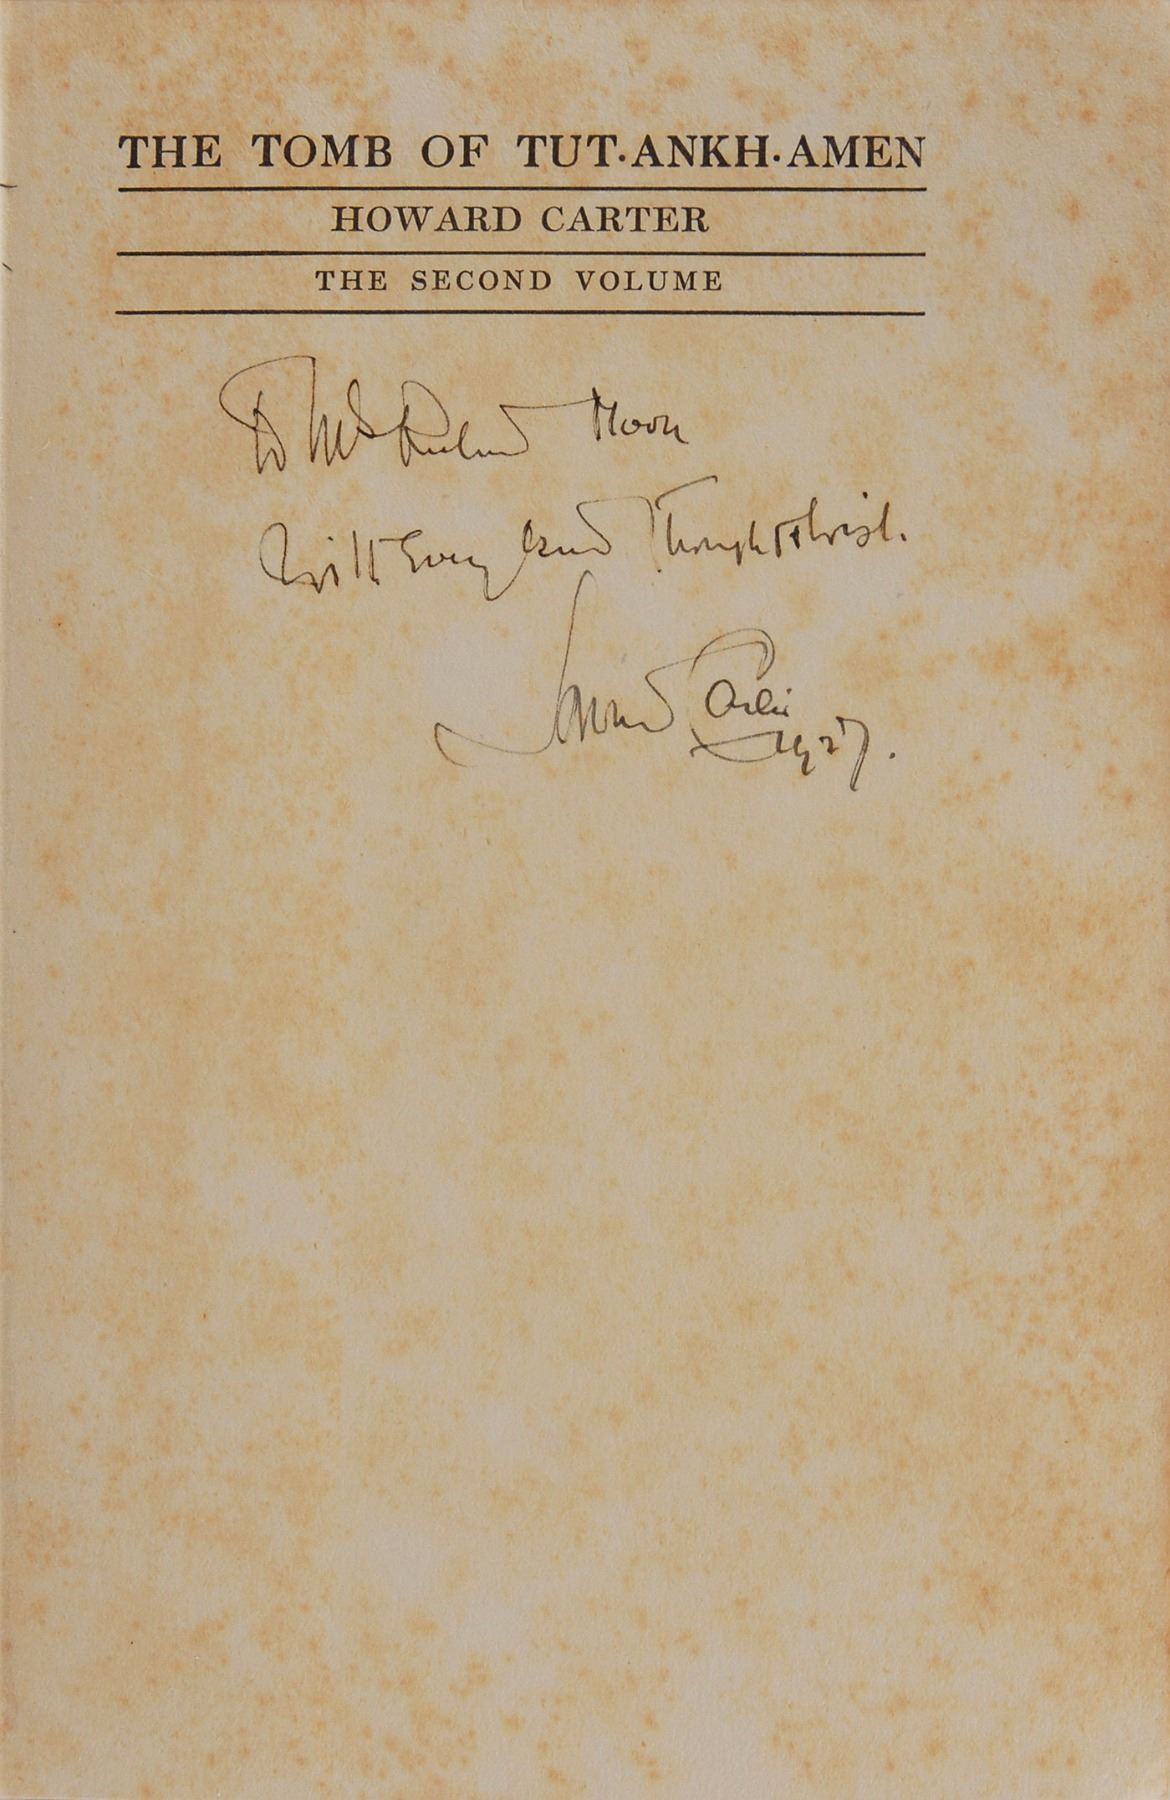 THE TOMB OF TUT·ANKH·AMEN
HOWARD CARTER
THE SECOND VOLUME
To Mrs Richard Moon
With Every kind Thought & Wish.
Howard Carter
1927.